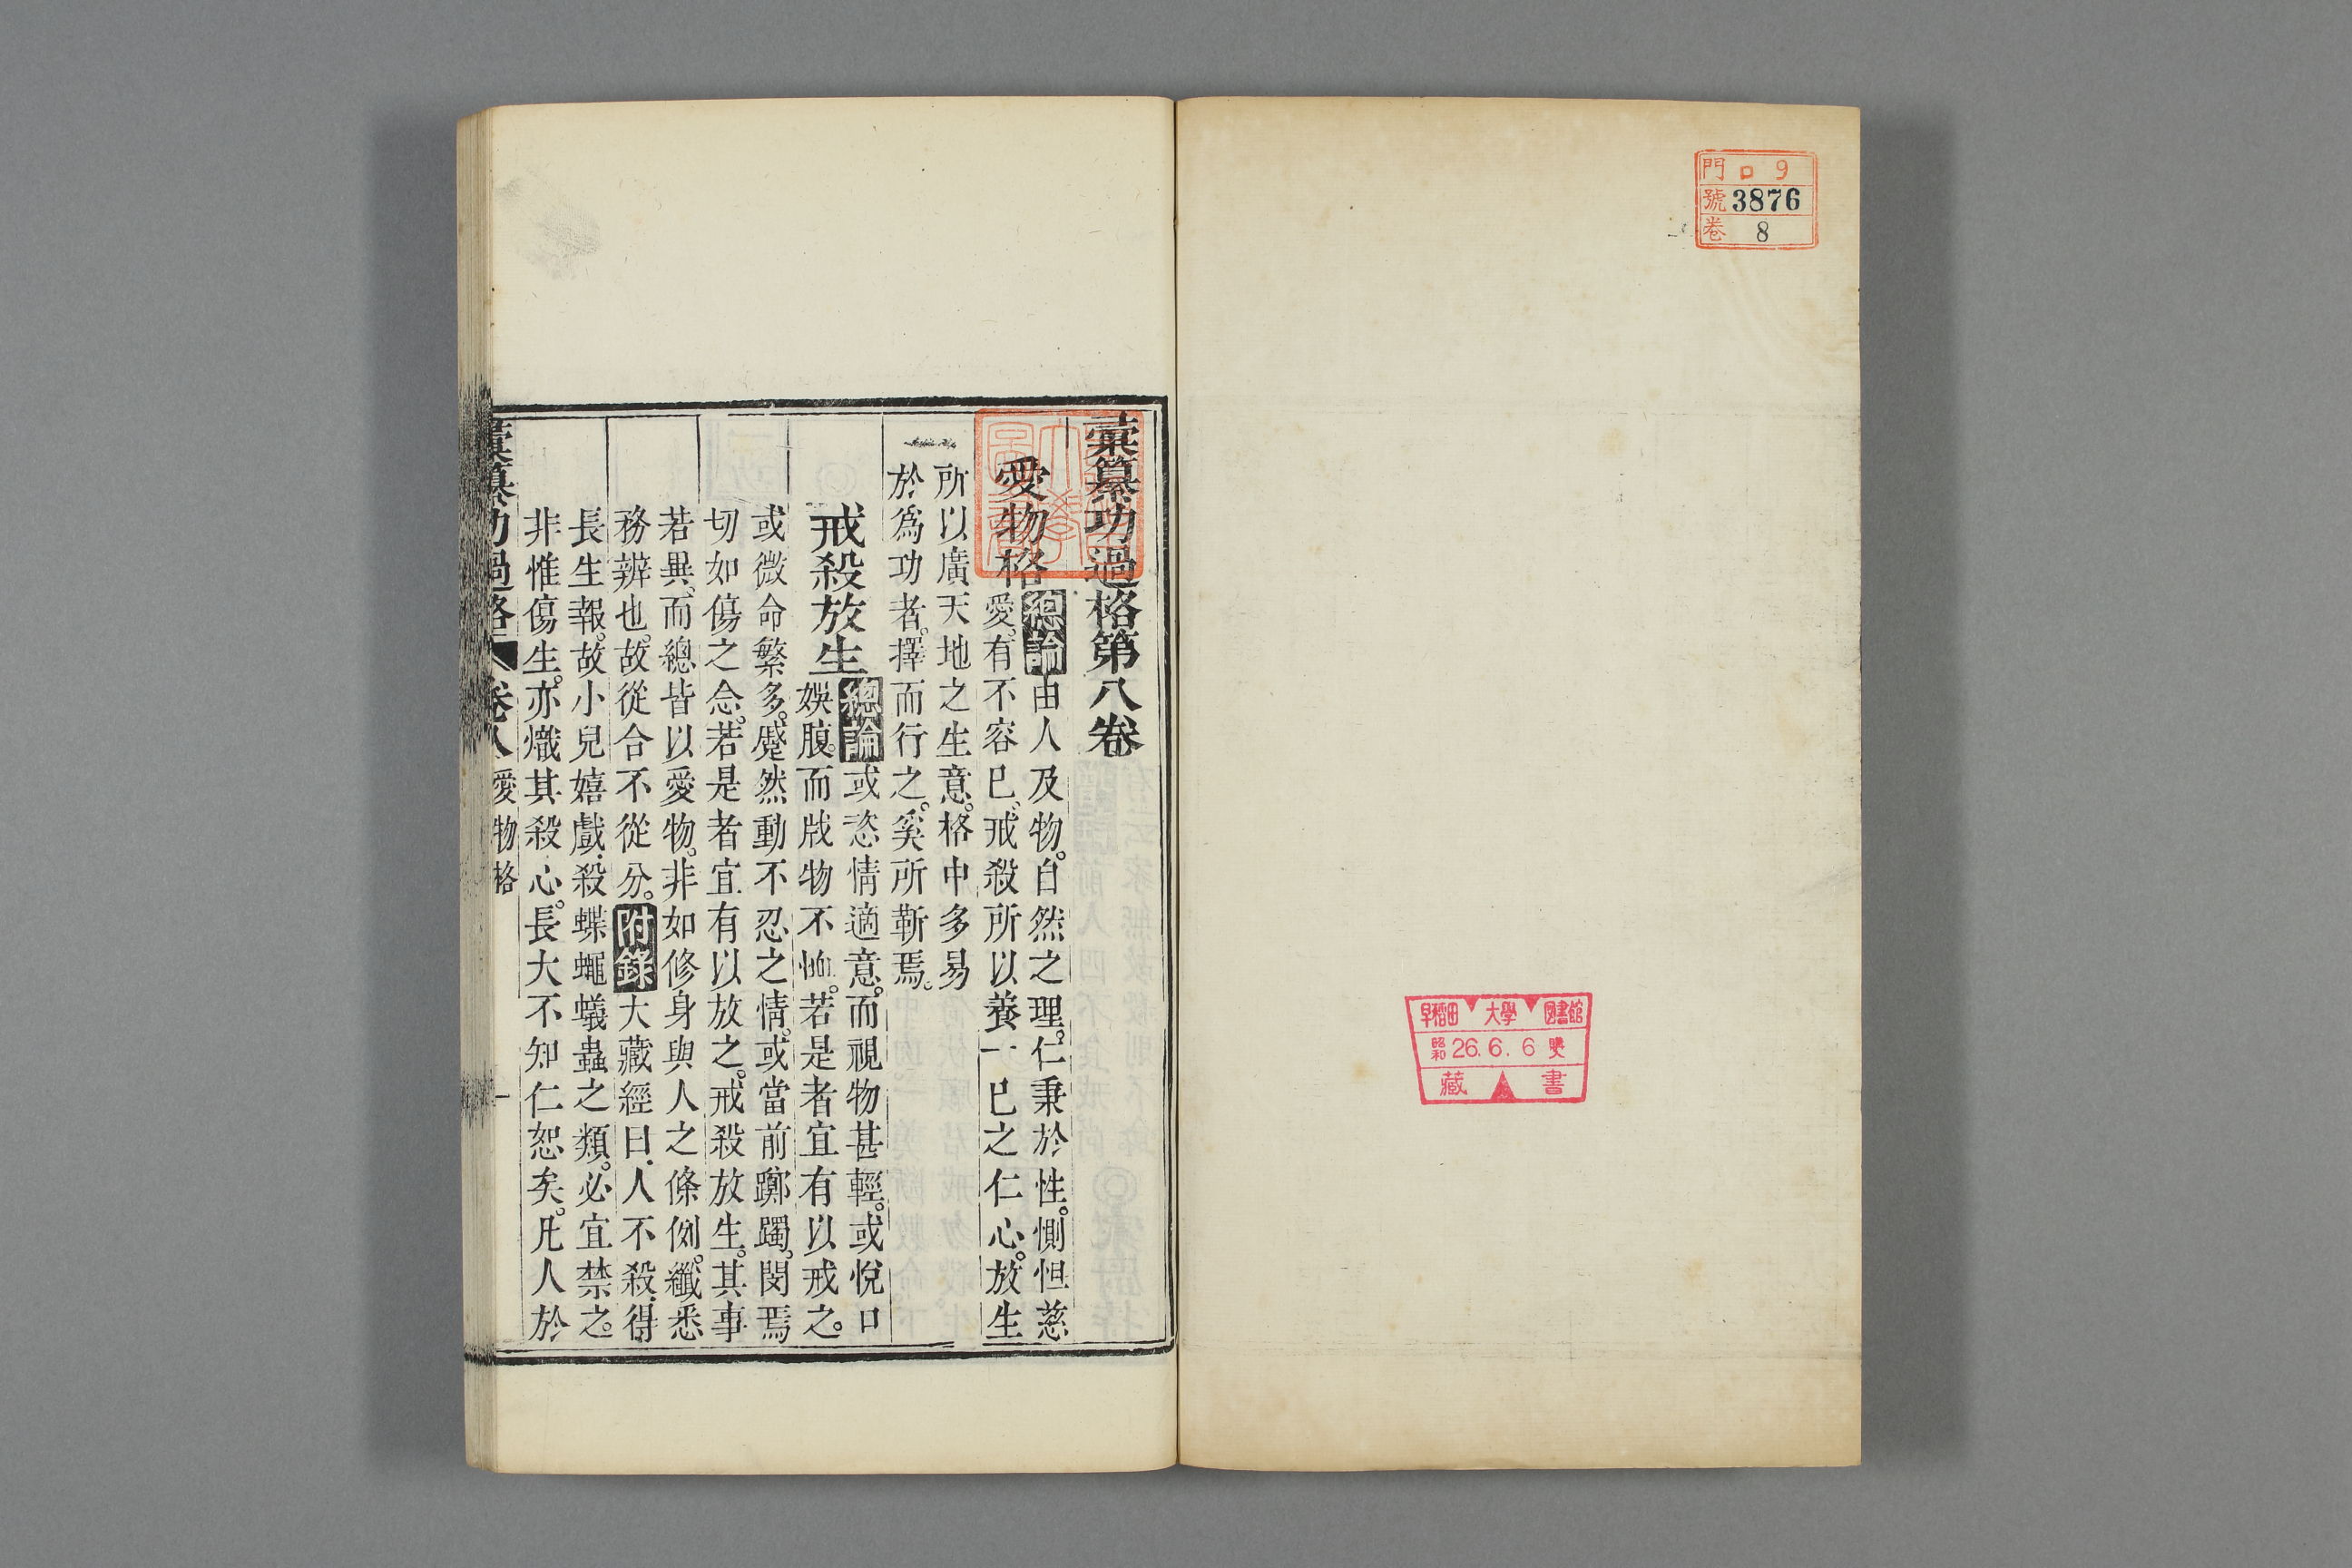 門 ロ 9
號 3876
卷 8
早稻田 大學 圖書館
昭和 26. 6. 6
藏 書
彙纂功過格第八卷
愛物格 總論 由人及物。自然之理。仁秉於性。惻怛慈
愛。有不容已。戒殺所以養一已之仁心。放生
所以廣天地之生意。格中多易
於爲功者。擇而行之。奚所靳焉。
戒殺放生 總論 或恣情適意。而視物甚輕。或悅口
娛腹。而戕物不恤。若是者宜有以戒之。
或微命繁多。蹙然動不忍之情。或當前躑躅。閔焉
切如傷之念。若是者宜有以放之。戒殺放生。其事
若異。而總皆以愛物。非如修身與人之條例。纖悉
務辨也。故從合不從分。附錄 大藏經曰。人不殺。得
長生報。故小兒嬉戲。殺蝶蠅蟻蟲之類。必宜禁之。
非惟傷生。亦熾其殺心。長大不知仁恕矣。凡人於
彙纂功過格 卷八 愛物格 一